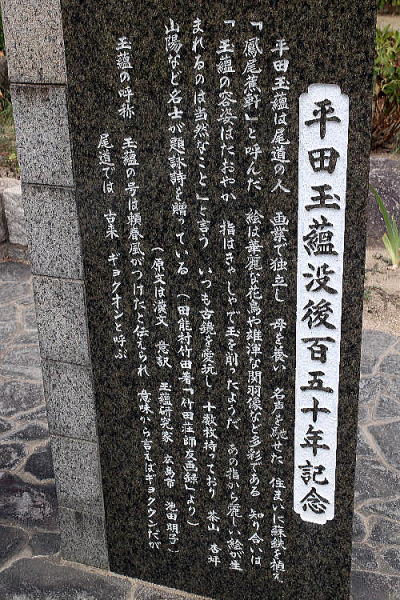 平田玉蘊没後百五十年記念
平田玉蘊は尾道の人　画業で独立し　母を養い　名声を馳せた　住まいに蘇鉄を植え
「鳳尾蕉軒」と呼んだ　絵は華麗な花鳥や雄渾な関羽像など多彩である　知り合いは
「玉蘊の容姿はたおやか　指はきゃしゃで玉を削ったようだ　あの指から麗しい絵が生
まれるのは当然なこと」と言う　いつも古鏡を愛玩し　十数枚持っており　茶山　杏坪
山陽など名士が題詠詩を贈っている　（田能村竹田著「竹田荘師友画録」より）
（原文は漢文　意訳　玉蘊研究家　広島市　池田明子）
玉蘊の呼称　玉蘊の号は頼春風がつけたと伝えられ　意味から言えばギョクウンだが
尾道では　古来　ギョクオンと呼ぶ